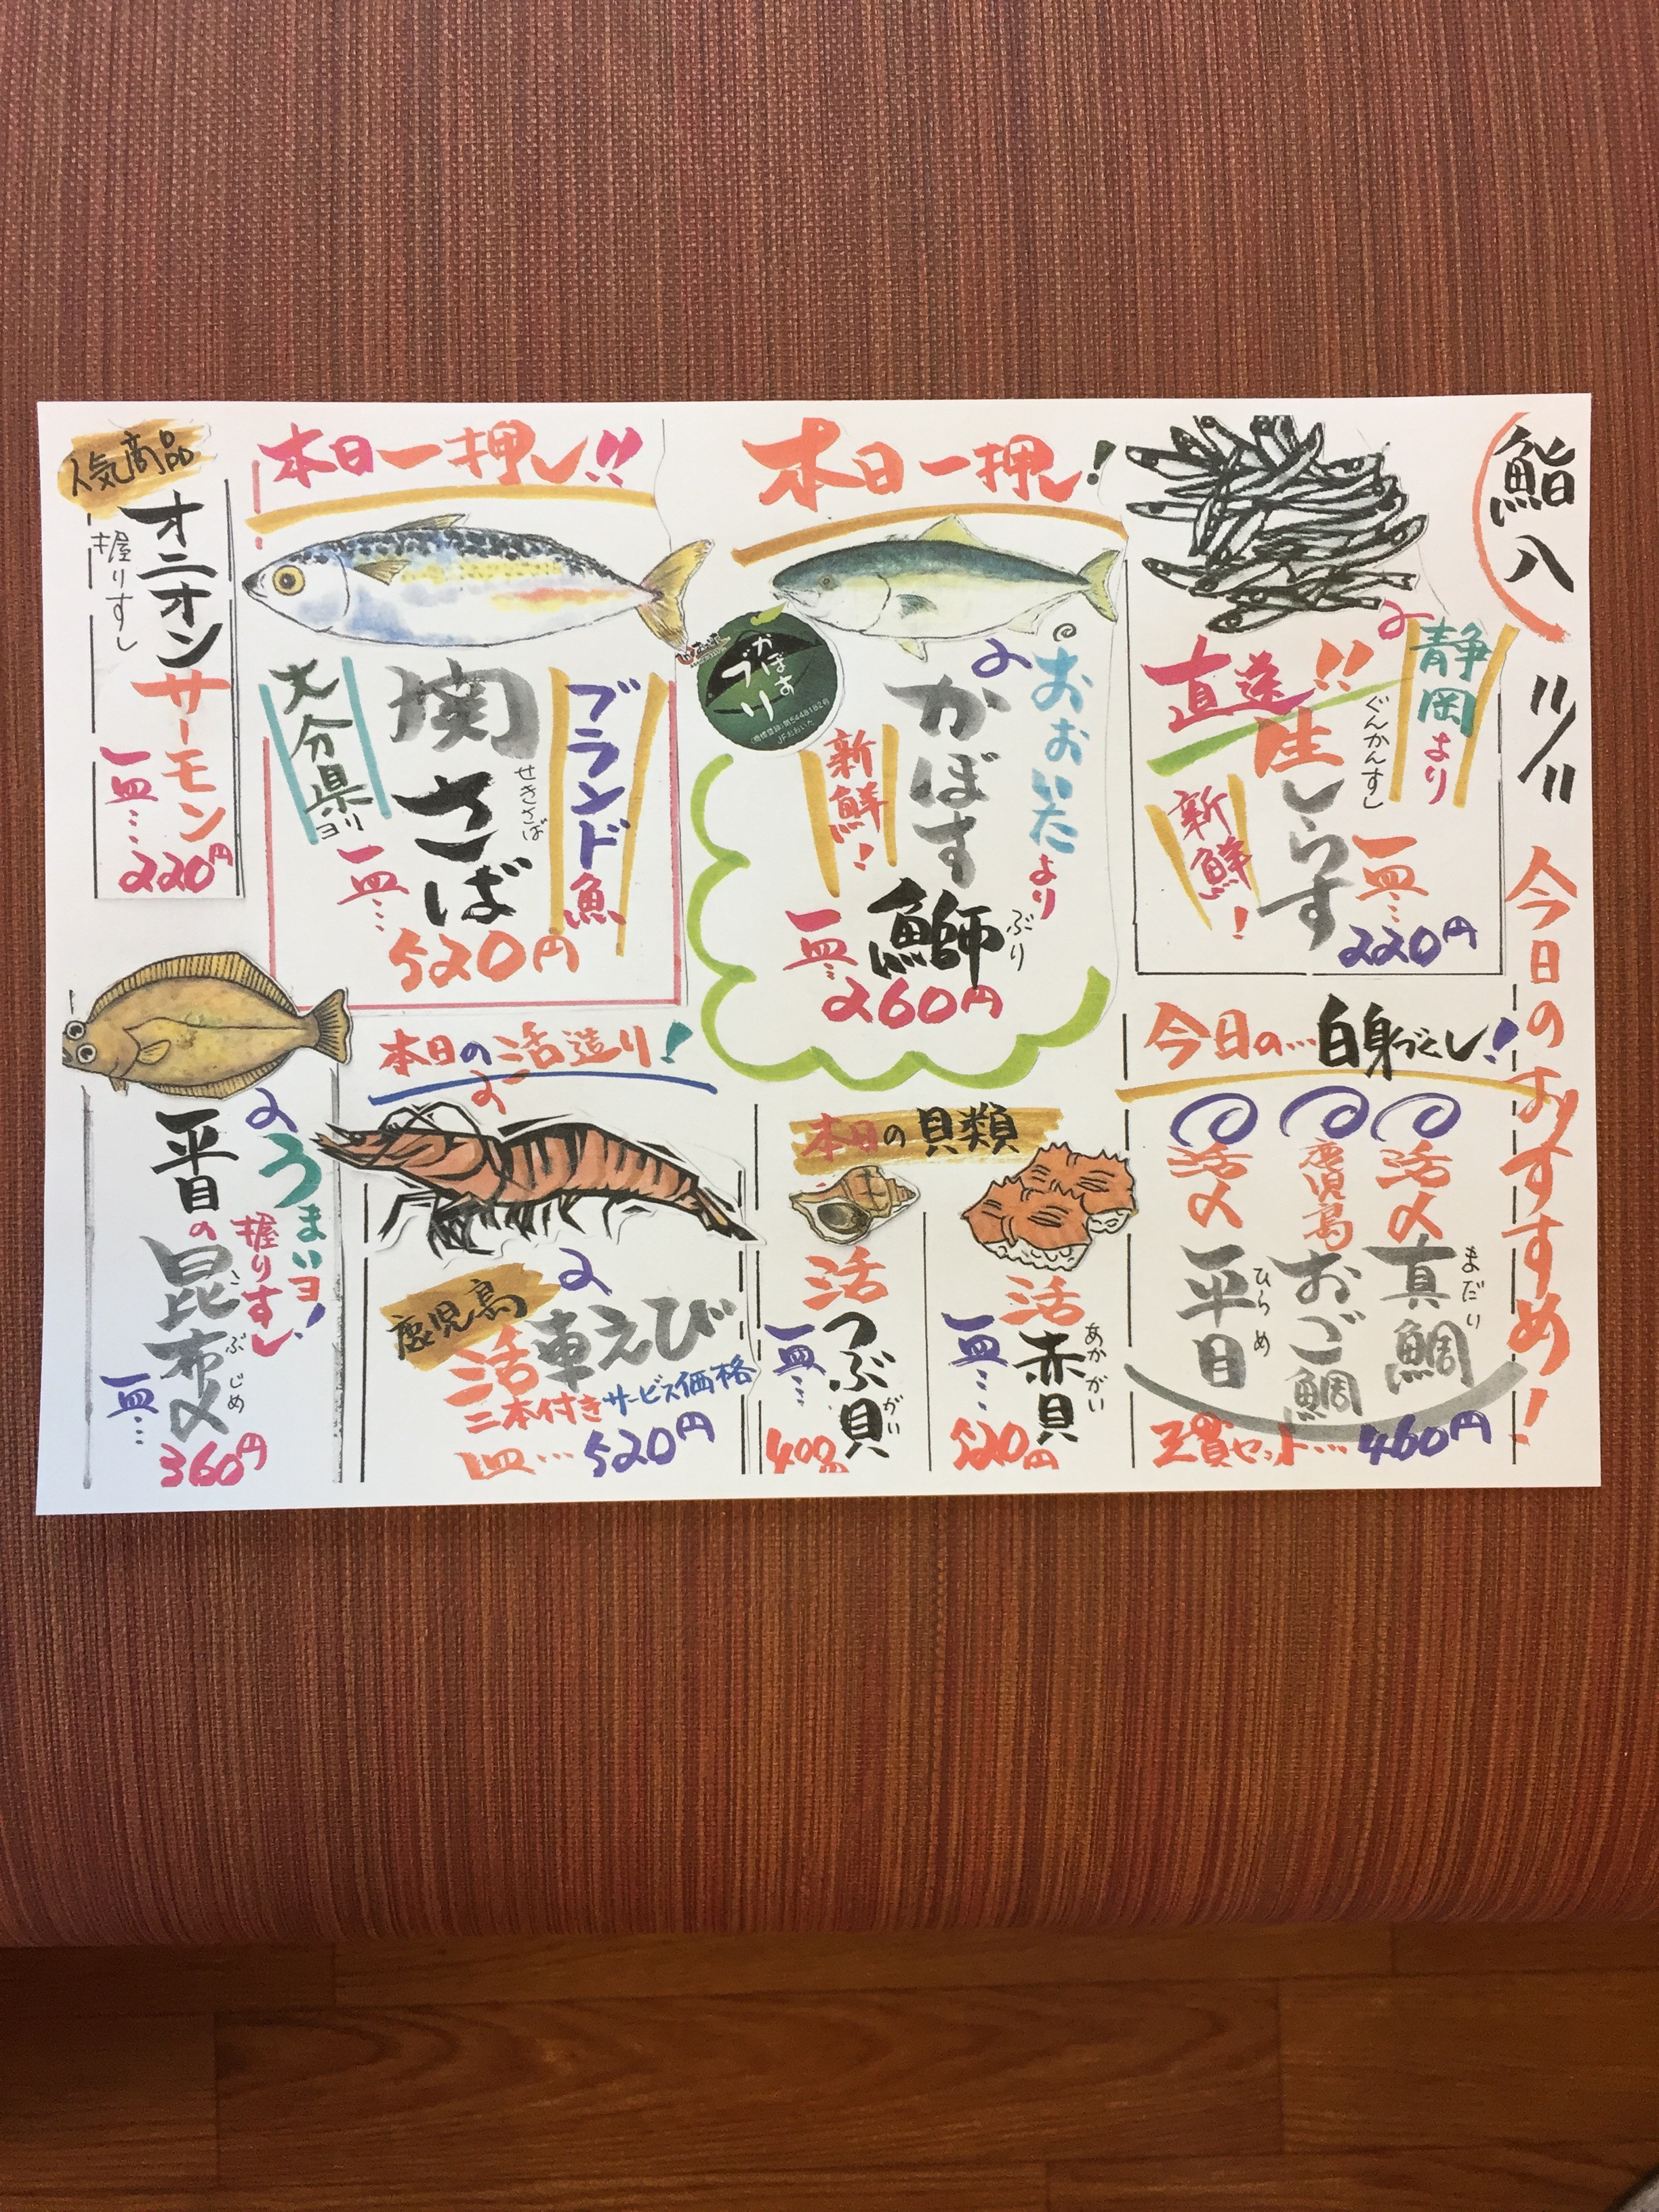 鮨八
今日のおすすめ!
静岡より
直送!!
生しらす
ぐんかんすし
新鮮!
一皿…
220円
本日一押し!
おおいたより
かぼす鰤
ぶり
新鮮!
一皿…
260円
かぼすブリ
JFおおいた
本日一押し!!
ブランド魚
関さば
せきさば
大分県ヨリ
一皿…
520円
人気商品
オニオンサーモン
握りすし
一皿…
220円
今日の…白身づくし!
活〆
真鯛
まだい
鹿児島
おご鯛
活〆
平目
ひらめ
三貫セット…460円
本日の貝類
活
赤貝
あかがい
一皿…
520円
活
つぶ貝
がい
一皿…
400円
本日の活造り!
鹿児島
活車えび
二本付きサービス価格
一皿…520円
うまいヨ!
握りすし
平目の昆布〆
こぶじめ
一皿…
360円